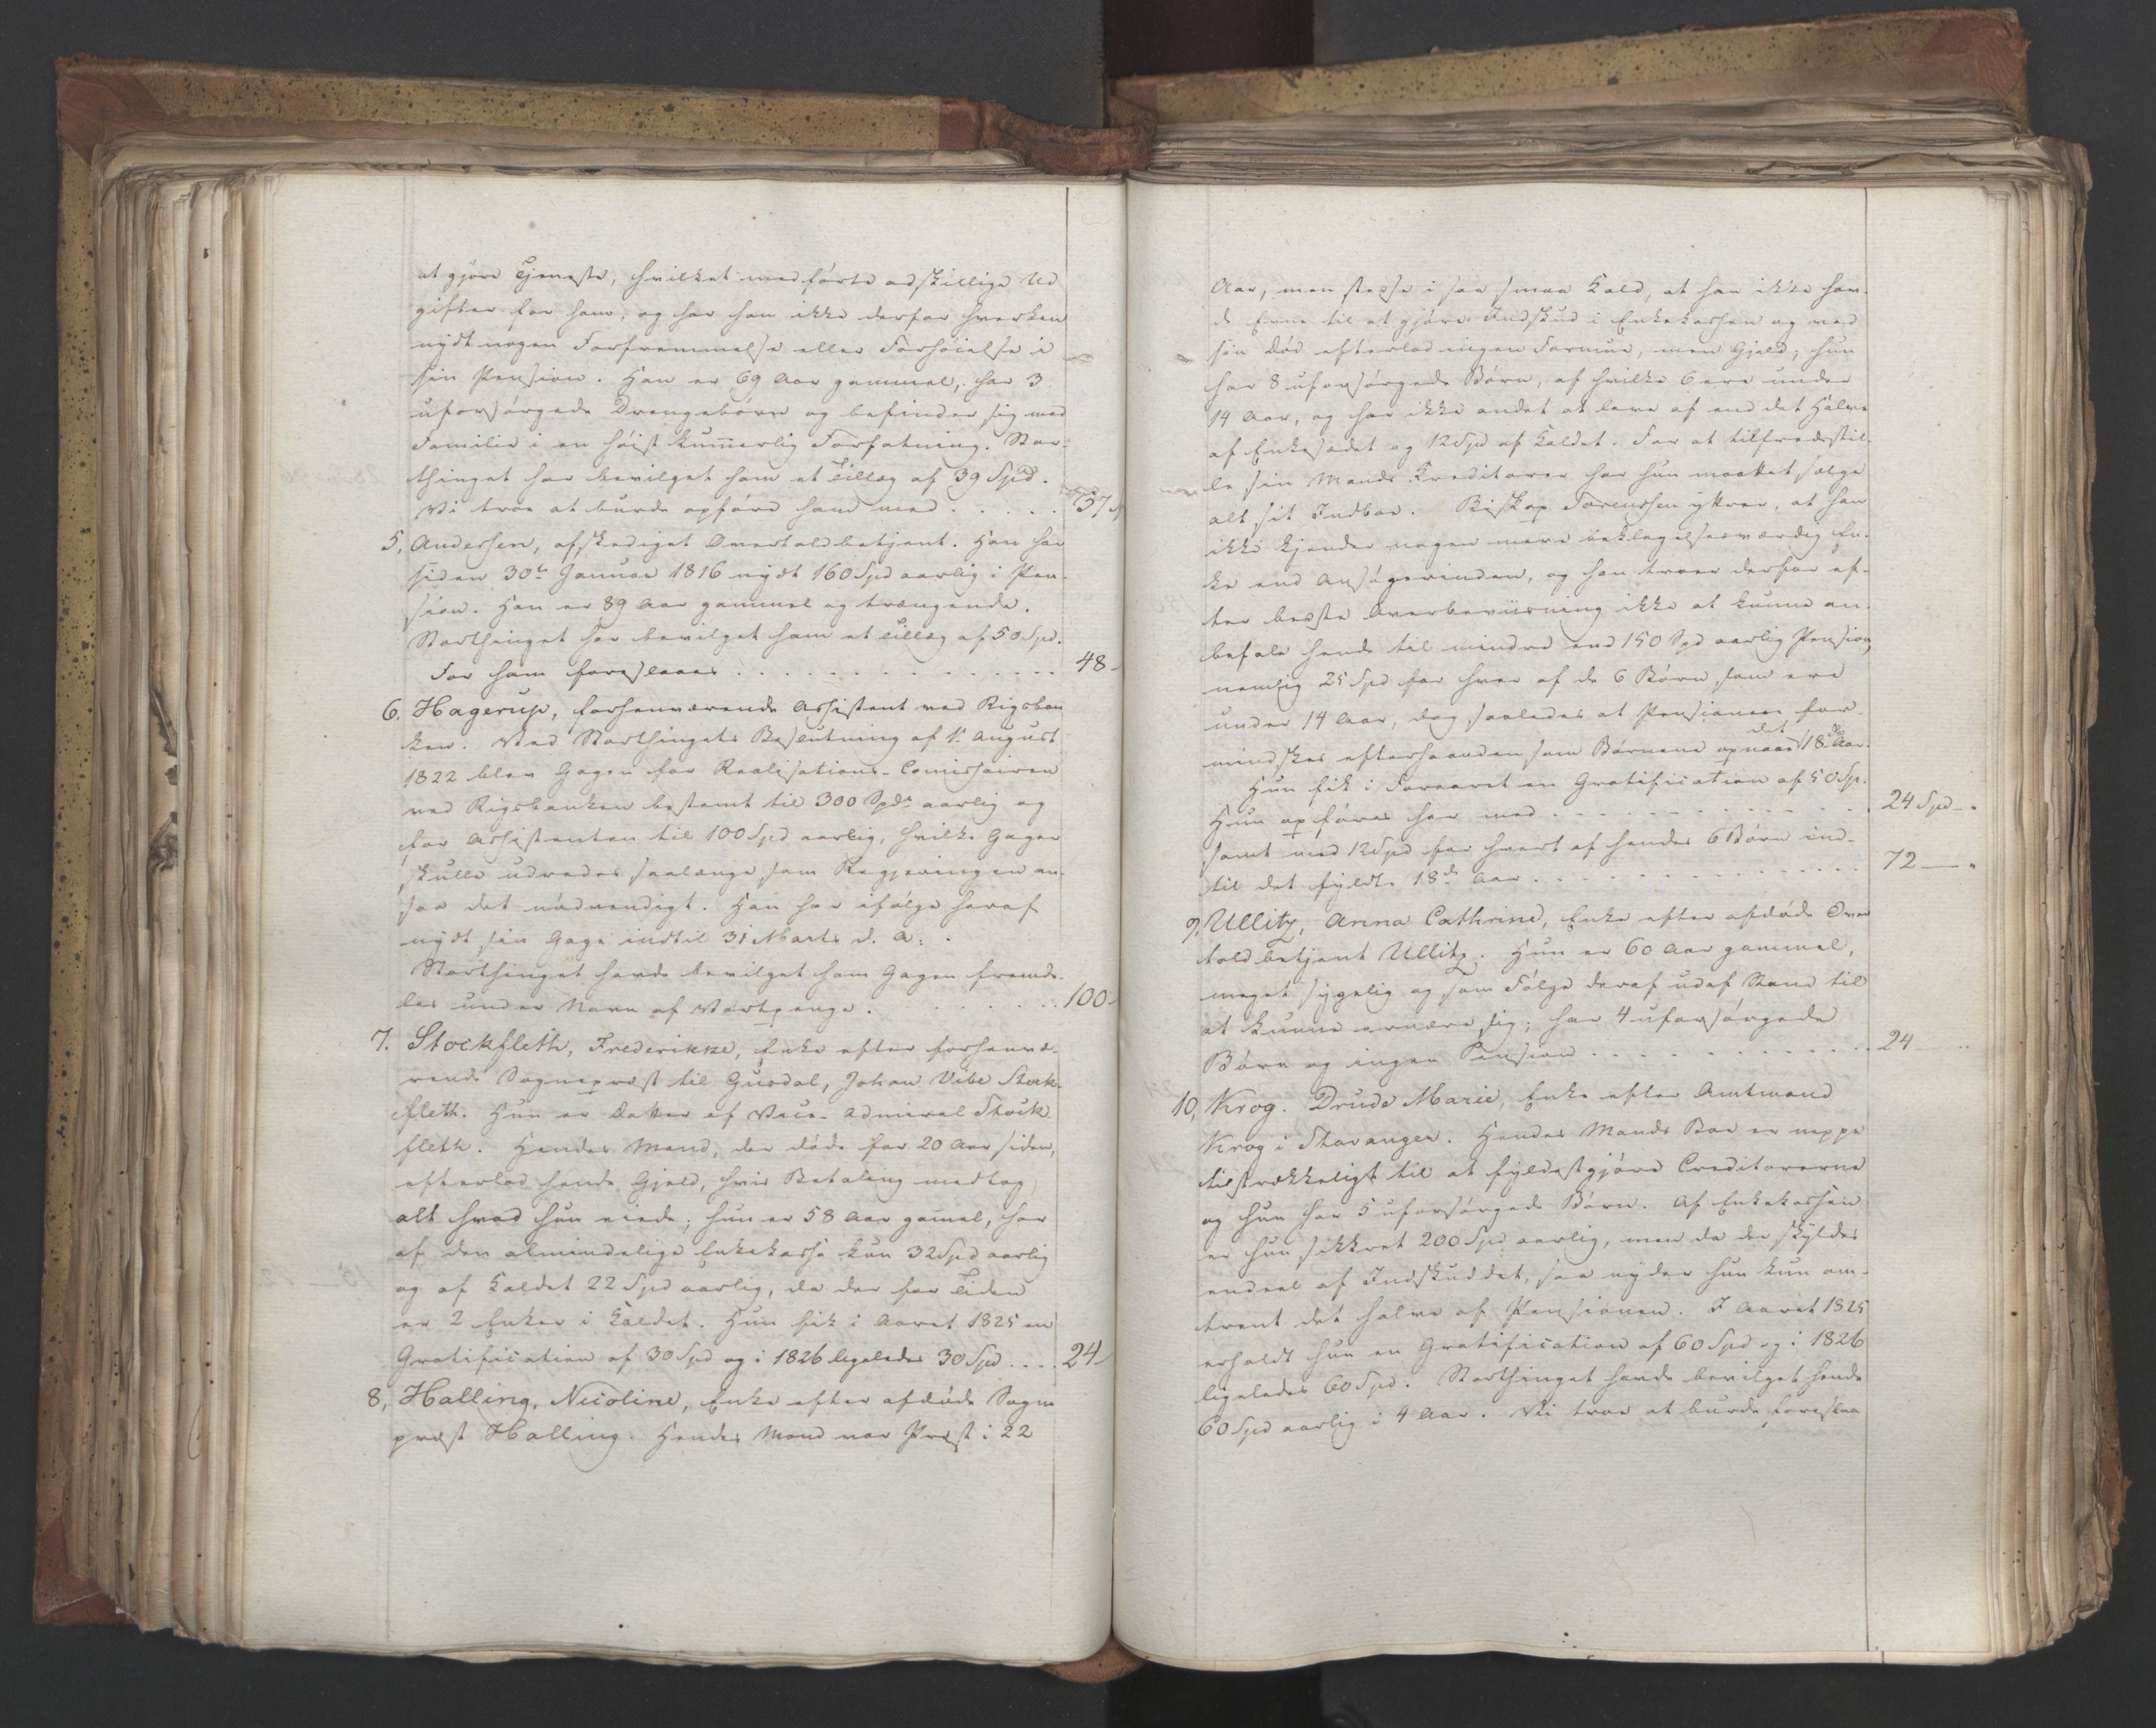 at gjøre Tjeneste, hvilket medførte adskillige Ud
gifter for ham, og har han ikke derfor hverken
nydt nogen Forfremmelse eller Forhøielse i
sin Pension. Han er 69 Aar gammel, har 3
uforsørgede Drengebørn og befinder sig med
Familie i en høist kummerlig Forfatning. Stor-
thinget har bevilget ham et Tillæg af 39 Spd.
Vi troe at burde opføre ham med . . . . . 37
5, Andersen, afskediget Overtoldbetjent. Han har
siden 30te Januar 1816 nydt 160 Spd aarlig i Pen-
sion. Han er 89 Aar gammel og trængende.
Storthinget har bevilget ham et Tillæg af 50 Spd.
For ham foreslaaes . . . . . . . . . . . . . . 48
6. Hagerup, forhenværende Assistent ved Rigsban
ken. Ved Storthingets Beslutning af 1. August
1822 blev Gagen for Realisations-Comissairen
ved Rigsbanken bestemt til 300 Spd aarlig og
for Assistenten til 100 Spd aarlig, hvilke Gager
skulle udredes saalænge som Regjeringen an-
saa det nødvendigt. Han har ifølge heraf
nydt sin Gage indtil 31 Marts d. A.
Storthinget havde bevilget ham Gagen fremde-
les under Navn af Vartpenge. . . . . . 100
7. Stockfleth, Frederikke, Enke efter forhenvæ-
rende Sognepræst til Gusdal, Johan Vibe Stock-
fleth. Hun er Datter af Vice-Admiral Stock
fleth. Hendes Mand, der døde for 20 Aar siden,
efterlod hende Gjæld, hvis Betaling medtog
alt hvad hun eiede; hun er 58 Aar gamel, har
af den almindelige Enkekasse kun 32 Spd aarlig
og af Kaldet 22 Spd aarlig, da der for Tiden
er 2 Enker i Kaldet. Hun fik i Aaret 1825 en
Gratification af 30 Spd og i 1826 ligeledes 30 Spd . . . . 24
8, Halling, Nicoline, Enke efter afdøde Sogne
præst Halling. Hendes Mand var Præst i 22
Aar, men stedse i saa smaa Kald, at han ikke hav-
de Evne til at gjøre Indskud i Enkekassen og ved
sin Død efterlod ingen Formue, men Gjæld; hun
har 8 uforsørgede Børn, af hvilke 6 ere under
14 Aar, og har ikke andet at leve af end det Halve
af Enkesædet og 12 Spd af Kaldet. For at tilfredsstil-
le sin Mands Kreditorer har hun maattet sælge
alt sit Indboe. Biskop Sørenssen yttrer, at han
ikke kjender nogen mere beklagelsesværdig En-
ke end Ansøgerinden, og han troer derfor ef-
ter bedste Overbeviisning ikke at kunne an-
befale hende til mindre end 150 Spd aarlig Pension,
nemlig 25 Spd for hver af de 6 Børn, som ere
under 14 Aar, dog saaledes at Pensionen for-
mindskes efterhaanden som Børnene opnaae det 18de Aar.
Hun fik i Foraaret en Gratification af 50 Sp.
Hun opføres her med . . . . . . . . . . . 24 Spd
samt med 12 Spd for hvert af hendes 6 Børn ind-
til det fyldte 18de Aar . . . . . . . . . . . . . 72
9, Ullitz, Anna Cathrine, Enke efter afdøde Over
toldbetjent Ullitz. Hun er 60 Aar gammel,
meget sygelig og som Følge deraf udaf Stand til
at kunne ernære sig; har 4 uforsørgede
Børn og ingen Pension . . . . . . . . . . . 24
10, Krog. Drude Marie, Enke efter Amtmand
Krog i Stavanger. Hendes Mands Boe er neppe
tilstrækkeligt til at fyldestgjøre Creditorerne
og hun har 5 uforsørgede Børn. Af Enkekassen
er hun sikkret 200 Spd aarlig, men da der skyldes
endeel af Indskuddet, saa nyder hun kun om-
trent det halve af Pensionen. I Aaret 1825
erholdt hun en Gratification af 60 Spd og i 1826
ligeledes 60 Spd. Storthinget havde bevilget hende
60 Spd aarlig i 4 Aar. Vi troe at burde foreslaa